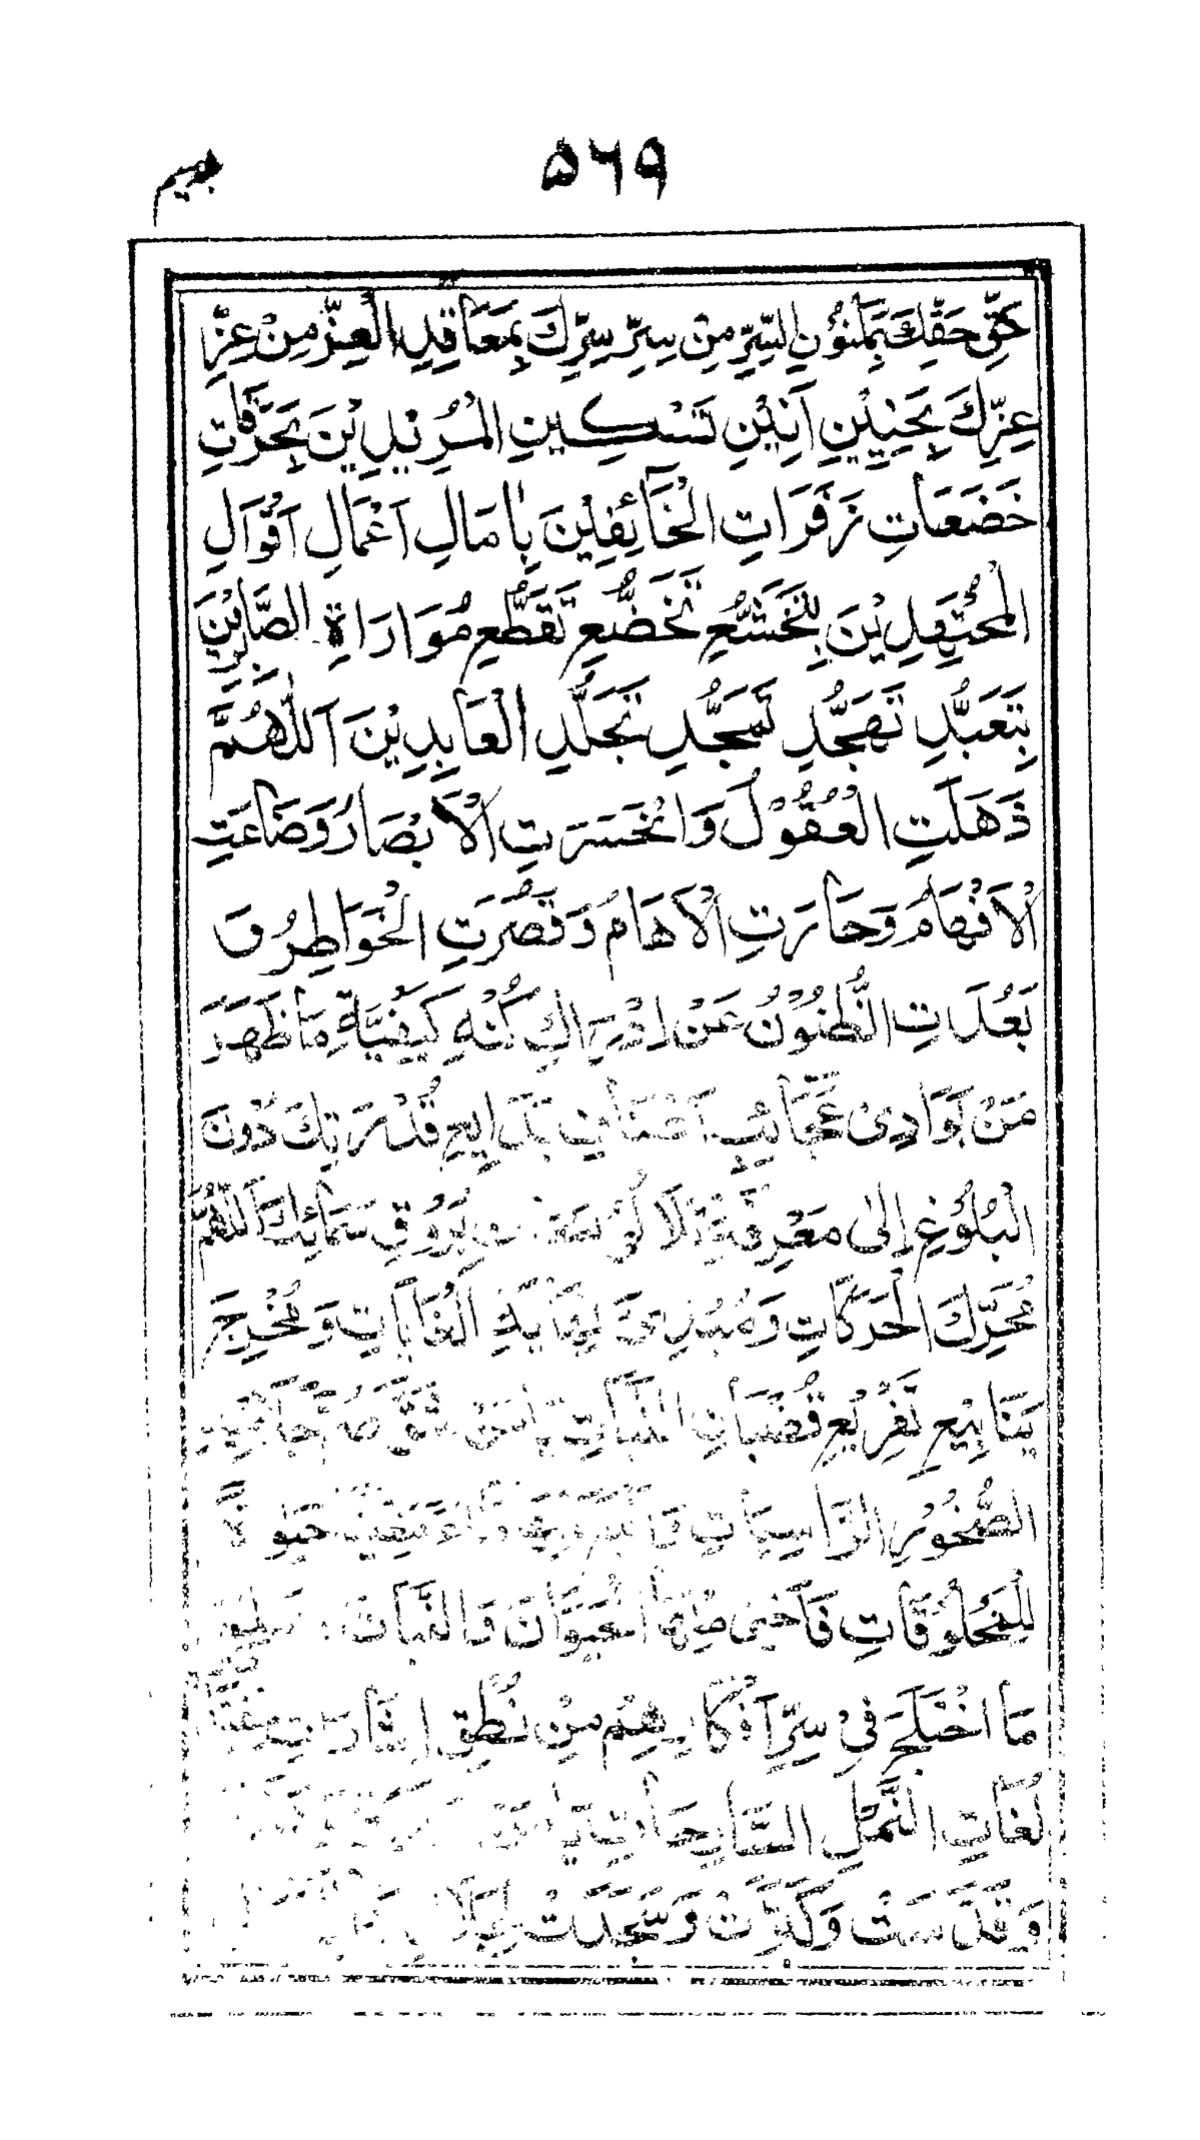 ۵۶۹
حَقِّ حَقِّكَ بِمَكْنُوْنِ السِّرِّ مِنْ سِرِّ سِرِّكَ بِمَعَاقِدِ الْعِزِّ مِنْ عِزِّ
عِزِّكَ بِحَنِيْنِ اَنِيْنِ تَسْكِيْنِ الْمُرِيْدِيْنَ بِحَرَكَاتِ
خَضَعَاتِ زَفَرَاتِ الْخَآئِفِيْنَ بِاٰمَالِ اَعْمَالِ اَقْوَالِ
الْمُجْتَهِدِيْنَ بِتَخَشُّعِ تَخَضُّعِ تَقَطُّعِ مُوَارَاةِ الصَّابِرِيْنَ
بِتَعَبُّدِ تَهَجُّدِ تَمَجُّدِ تَجَلُّدِ الْعَابِدِيْنَ اَللّٰهُمَّ
ذَهَلَتِ الْعُقُوْلُ وَانْحَسَرَتِ الْاَبْصَارُ وَضَاعَتِ
الْاَفْهَامُ وَحَارَتِ الْاَهَامُ وَقَصُرَتِ الْخَوَاطِرُ وَ
بَعُدَتِ الظُّنُوْنُ عَنْ اِدْرَاكِ كُنْهِ كَيْفِيَّةِ مَا ظَهَرَ
مِنْ بَوَادِیْ عَجَآئِبِ اَصْنَافِ بَدَايِعِ قُدْرَتِكَ دُوْنَ
الْبُلُوْغِ اِلٰى مَعْرِفَةِ تَلَاْلُؤِ بُرُوْقِ سَمَآئِكَ اَللّٰهُمَّ
مُحَرِّكَ الْحَرَكَاتِ وَمُبْدِئَ نِهَايَةِ الْغَايَاتِ وَمُخْرِجَ
يَنَابِيْعِ تَفْرِيْعِ قُضْبَانِ النَّبَاتِ
الصُّخُوْرِ الرَّاسِيَاتِ
لِلْمَخْلُوْقَاتِ فَاَحْيٰى مِنْهَا الْحَيَوَانَ وَالنَّبَاتَ
مَا اخْتَلَجَ فِیْ سِرِّ اَفْكَارِهِمْ مِنْ نُطْقِ اِشَارَاتِ
لُغَاتِ النَّمْلِ السَّارِحَاتِ
وَقَدَّسَتْ وَكَبَّرَتْ وَسَجَدَتْ